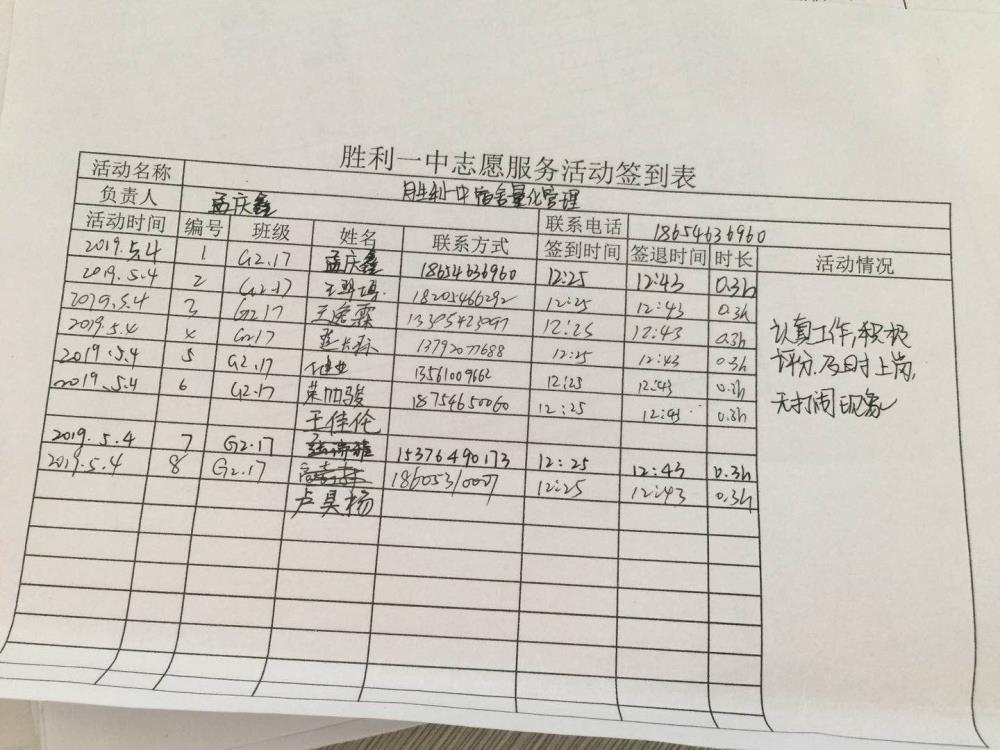 胜利一中志愿服务活动签到表
活动名称 胜利一中宿舍量化管理
负责人 孟庆鑫 联系电话 18654636960
活动时间 编号 班级 姓名 联系方式 签到时间 签退时间 时长 活动情况
2019.5.4 1 G2.17 孟庆鑫 18654636960 12:25 12:43 0.3h
2019.5.4 2 G2.17 18205466292 12:25 12:43 0.3h
2019.5.4 3 G2.17 12:25 12:43 0.3h
2019.5.4 4 G2.17 13792077688 12:25 12:43 0.3h
2019.5.4 5 G2.17 13561009662 12:25 12:43 0.3h
2019.5.4 6 G2.17 18754650060 12:25 12:43 0.3h
于佳伦
2019.5.4 7 G2.17 15376490173 12:25 12:43 0.3h
2019.5.4 8 G2.17 12:25 12:43 0.3h
卢昊杨
认真工作,积极
评分.及时上岗,
无打闹现象